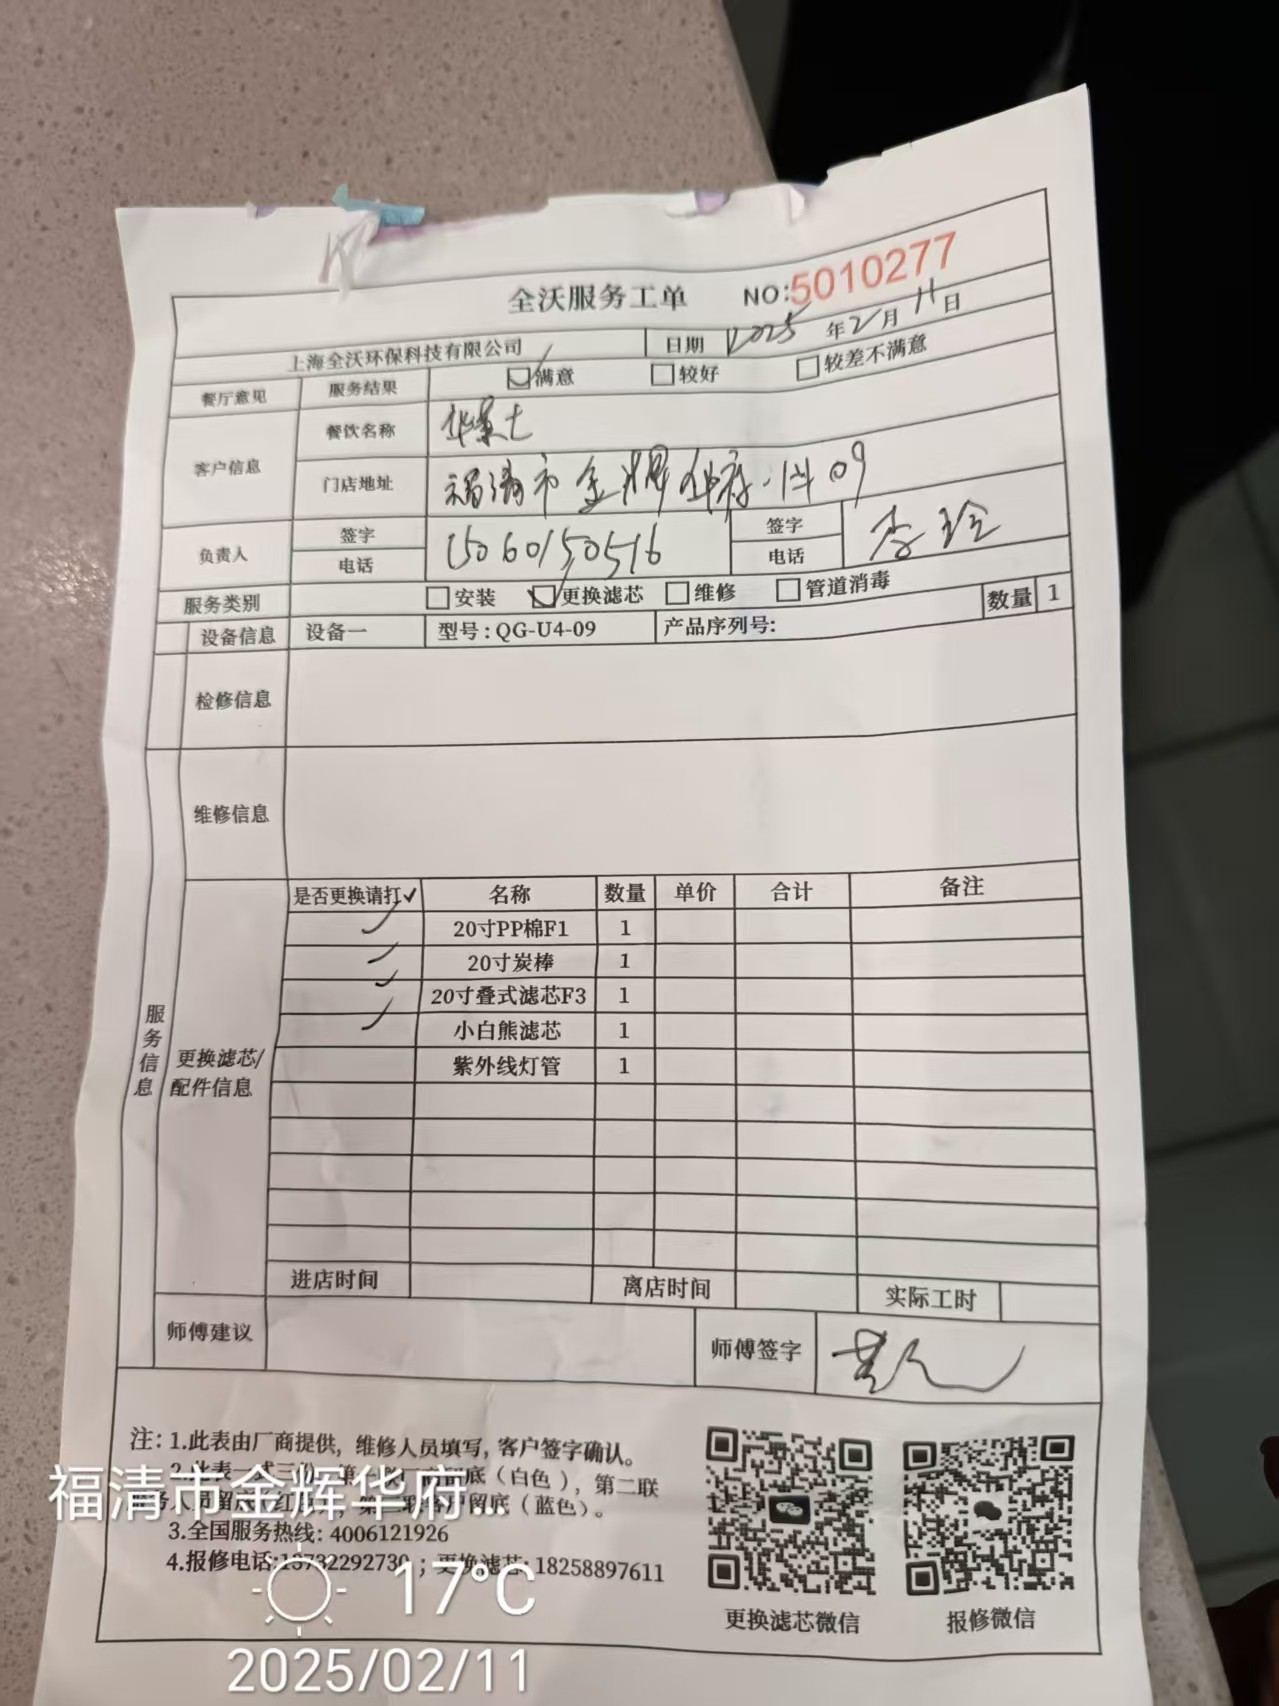 全沃服务工单 NO:5010277
上海全沃环保科技有限公司 日期 2025年2月11日
餐厅意见 服务结果 满意 较好 较差不满意
客户信息 餐饮名称 华莱士
门店地址 福清市金辉华府 09
负责人 签字 电话 15060150516 签字 电话 李玲
服务类别 安装 更换滤芯 维修 管道消毒
设备信息 设备一 型号:QG-U4-09 产品序列号: 数量 1
检修信息
维修信息
服务信息
更换滤芯/配件信息
是否更换请打✓ 名称 数量 单价 合计 备注
✓ 20寸PP棉F1 1
✓ 20寸炭棒 1
✓ 20寸叠式滤芯F3 1
✓ 小白熊滤芯 1
紫外线灯管 1
进店时间 离店时间 实际工时
师傅建议 师傅签字
注:1.此表由厂商提供,维修人员填写,客户签字确认。
2.此表一式三份,第一联厂商留底(白色),第二联
务人员留底(红色),第三联客户留底(蓝色)。
3.全国服务热线:4006121926
4.报修电话:18732292730;更换滤芯:18258897611
更换滤芯微信 报修微信
福清市金辉华府...
17°C
2025/02/11